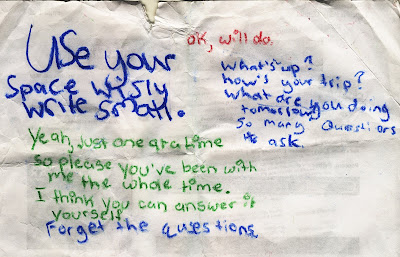 Use your
Space wisly
write small.
OK, will do.
What's up?
how's your trip?
what are you doing
tomorrow,
so many questions
to ask.
Yeah, just one q at a time
so please you've been with
me the whole time.
I think you can answer it
yourself
Forget the questions